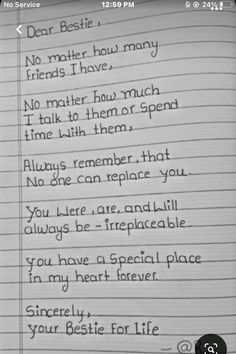 No Service 12:59 PM 24%
Dear Bestie,
No matter how many
friends I have,
No matter how much
I talk to them or Spend
time with them,
Always remember, that
No one can replace you.
You Were, are, and Will
always be - irreplaceable.
you have a Special place
in my heart forever.
Sincerely,
your Bestie For Life
- @